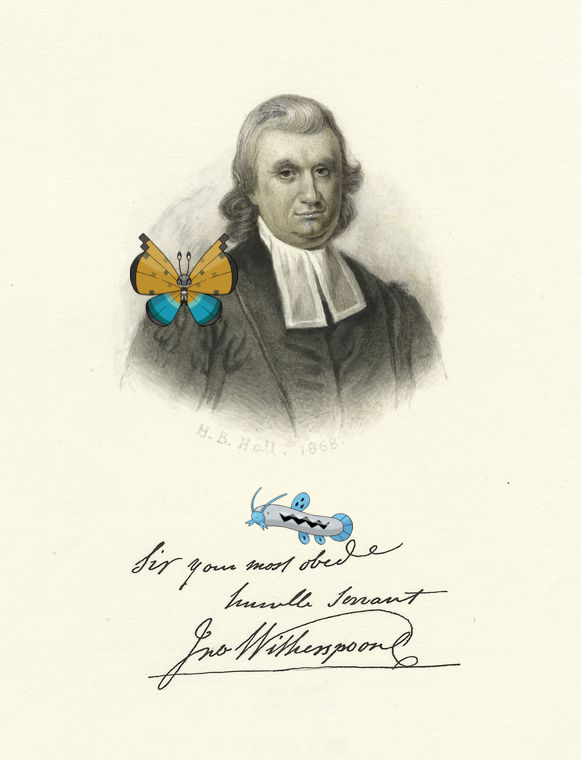 H. B. Hall. 1868.
Sir your most obede
humble Servant
Jno Witherspoon